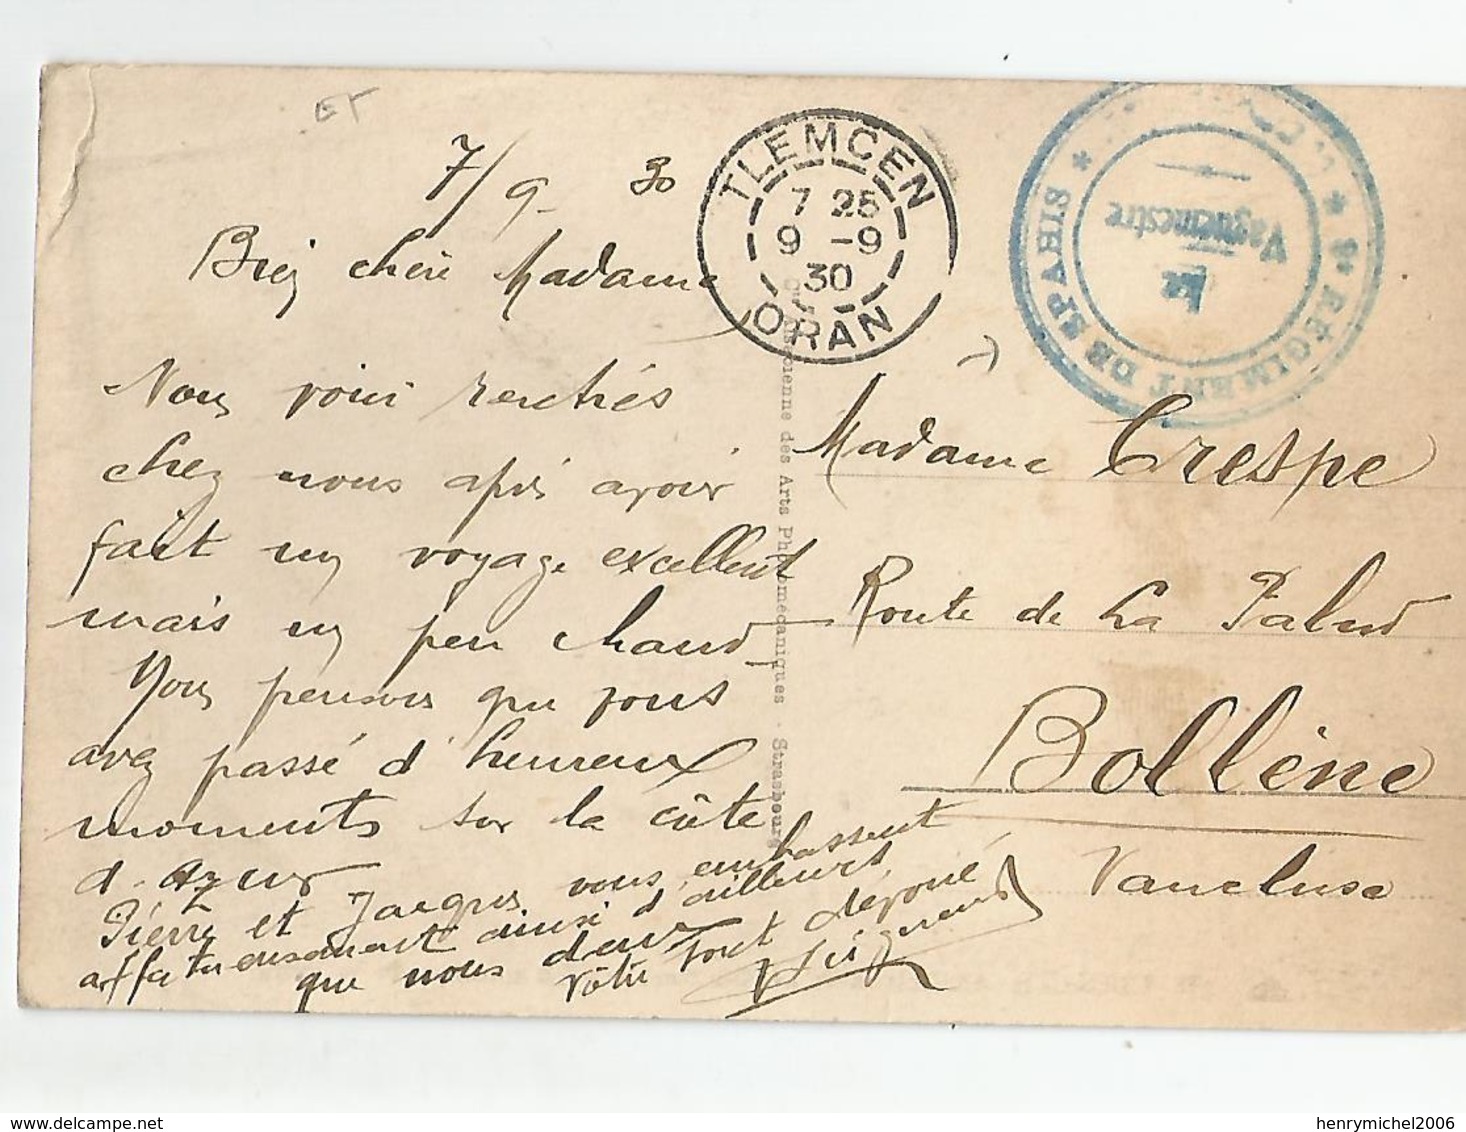 ET
7/9 30
Bien chère Madame
Nous voici rentrés
chez nous après avoir
fait un voyage excellent
mais un peu chaud
Nous pensons que vous
avez passé d'heureux
moments sur la côte
d'Azur
Pierre et Jacques vous embrassent
affectueusement ainsi d'ailleurs
que nous deux
Votre tout dévoué
TLEMCEN
7 25
9 -9
30
ORAN
RÉGIMENT DE SPAHIS
Le
Vaguemestre
Madame Crespe
Route de La Palud
Bollène
Vaucluse
Alsacienne des Arts Photomécaniques - Strasbourg
henrymichel2006